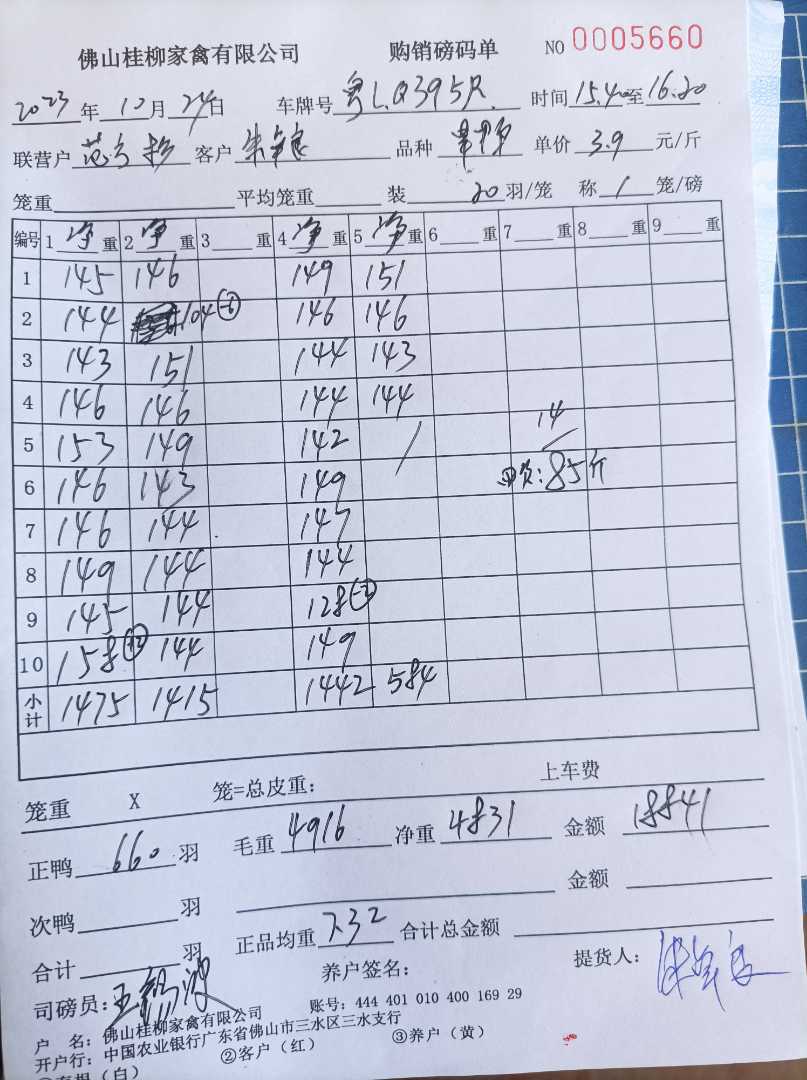 佛山桂柳家禽有限公司 购销磅码单 NO 0005660
2023年10月24日 车牌号 粤LQ395R 时间 15.40至16.20
联营户 客户 品种 单价 3.9 元/斤
笼重 平均笼重 装 20 羽/笼 称 1 笼/磅
编号 1 净 重 2 净 重 3 重 4 净 重 5 净 重 6 重 7 重 8 重 9 重
1 145 146 149 151
2 144 104 -6 146 146
3 143 151 144 143
4 146 146 144 144 14
5 153 149 142 /
6 146 143 149 :85斤
7 146 144 147
8 149 144 144
9 145 144 128
10 158 +2 144 149
小计 1475 1415 1442 584
笼重 X 笼=总皮重: 上车费
正鸭 660 羽 毛重 4916 净重 4831 金额 18841
次鸭 羽 金额
合计 羽 正品均重 7.32 合计总金额
司磅员: 王 养户签名: 提货人:
户 名: 佛山桂柳家禽有限公司 账号: 444 401 010 400 169 29
开户行: 中国农业银行广东省佛山市三水区三水支行
(白) ②客户(红) ③养户(黄)